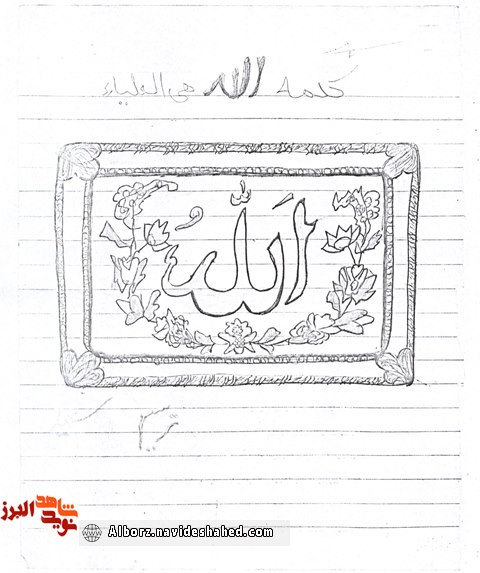 کلمه الله هی العلیاء
الله
نوید شاهد البرز
Alborz.navideshahed.com